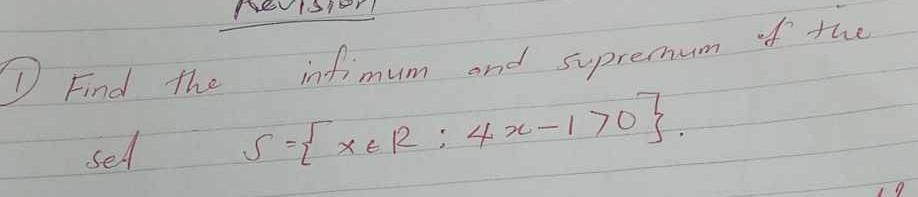 Revision
① Find the infimum and supremum of the
set S={x∈R : 4x-1>0}.